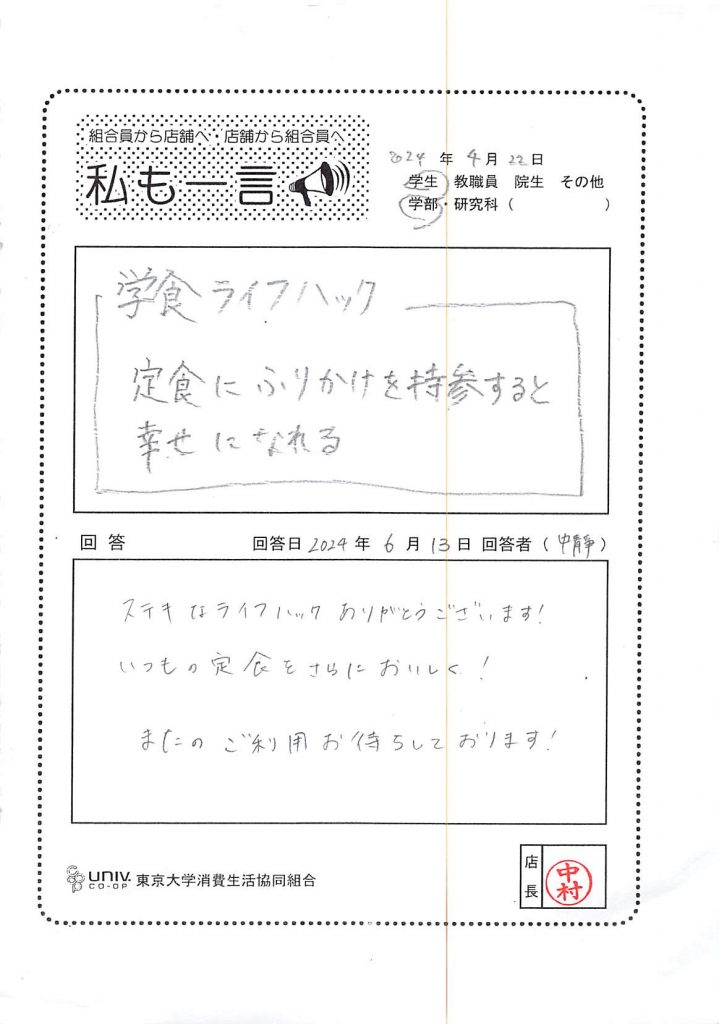 組合員から店舗へ・店舗から組合員へ
私も一言
2024 年 4 月 22 日
学生 教職員 院生 その他
学部・研究科 ( )
学食ライフハック
定食にふりかけを持参すると
幸せになれる
回答 回答日 2024 年 6 月 13 日 回答者 (中靜)
ステキなライフハックありがとうございます!
いつもの定食をさらにおいしく!
またのご利用お待ちしております!
UNIV. CO-OP 東京大学消費生活協同組合
店長 中村